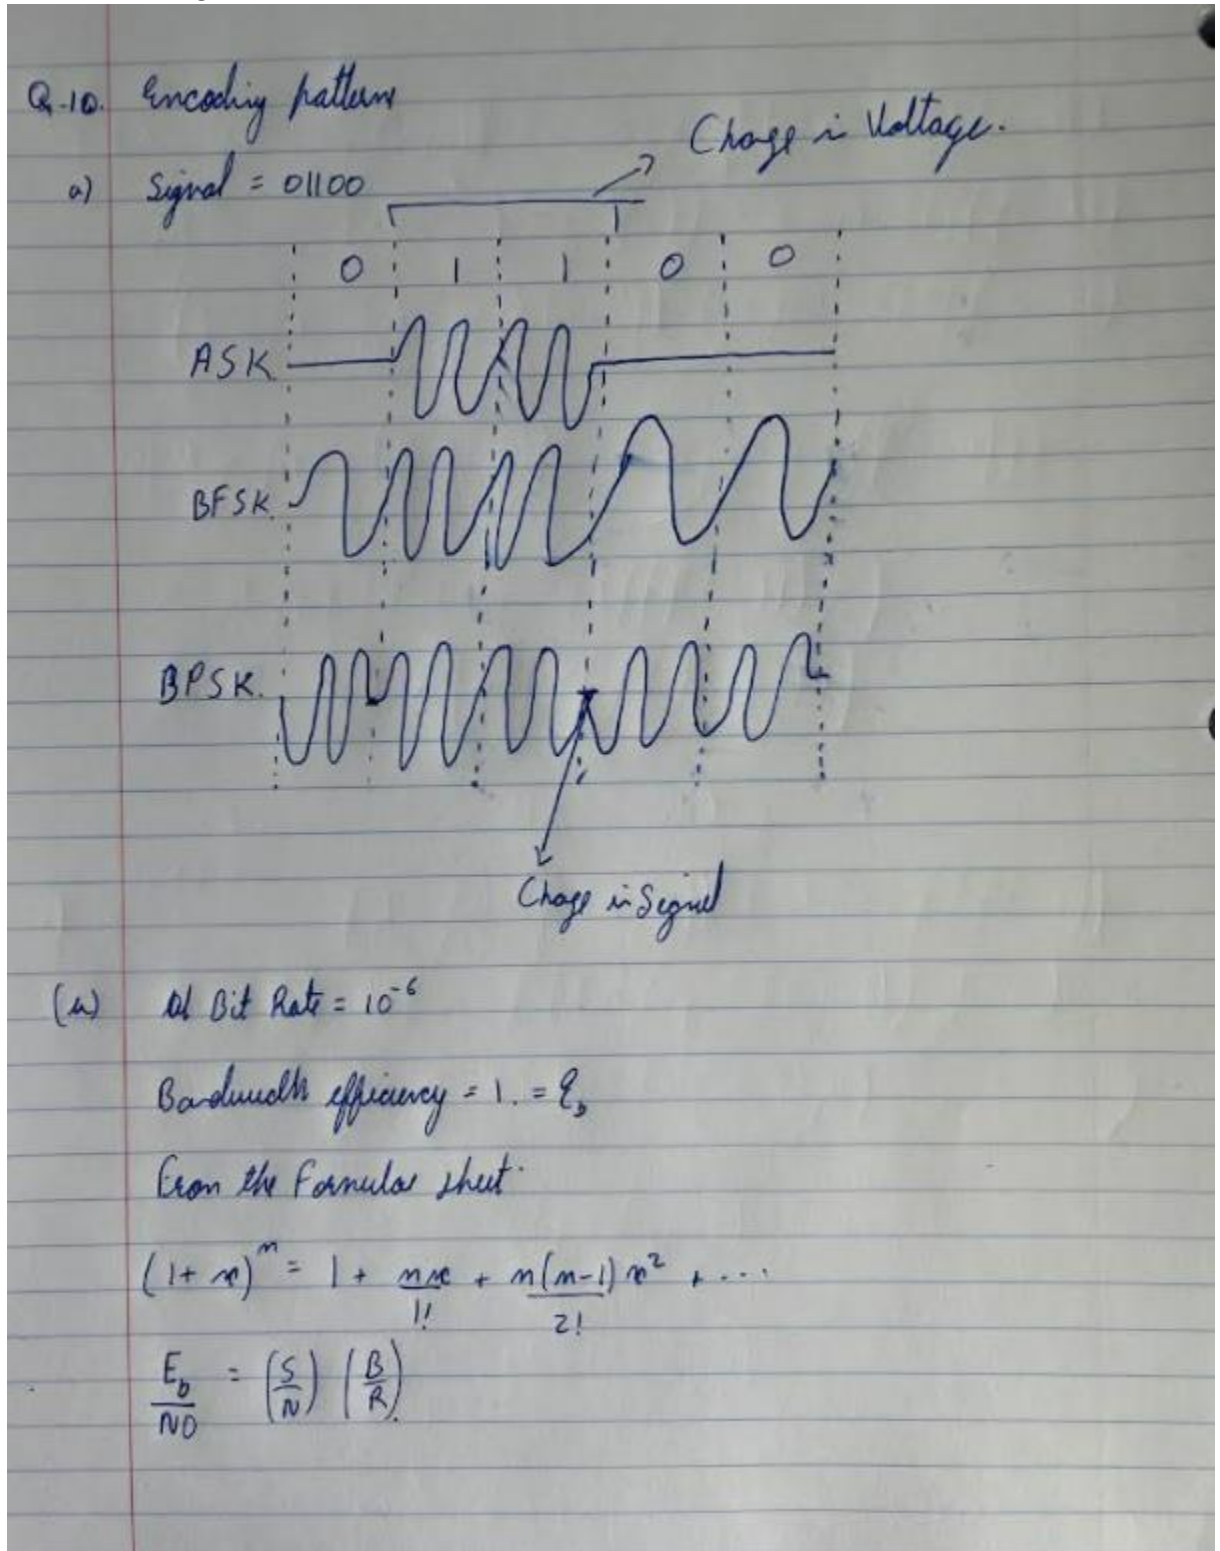 Q-10. Encoding pattern
Change in Voltage.
a) Signal = 01100
0 1 1 0 0
ASK
BFSK
BPSK.
Chage in Signal
Bit Rate = 10⁻⁶
Bandwidth efficiency = 1. =
From the Formulas sheet.
(1+x)ⁿ = 1 + nx/1! + n(n-1)x²/2! + ....
E_b/N0 = (S/N) (B/R)